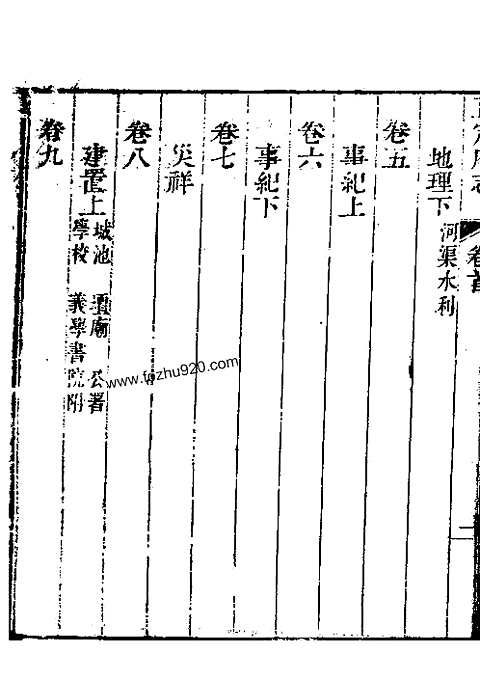 府志
卷首
地理下 河渠水利
卷五
事紀上
卷六
事紀下
卷七
災祥
卷八
建置上 城池 壇廟 公署
學校 義學書院附
卷九
二
www.fozhu920.com